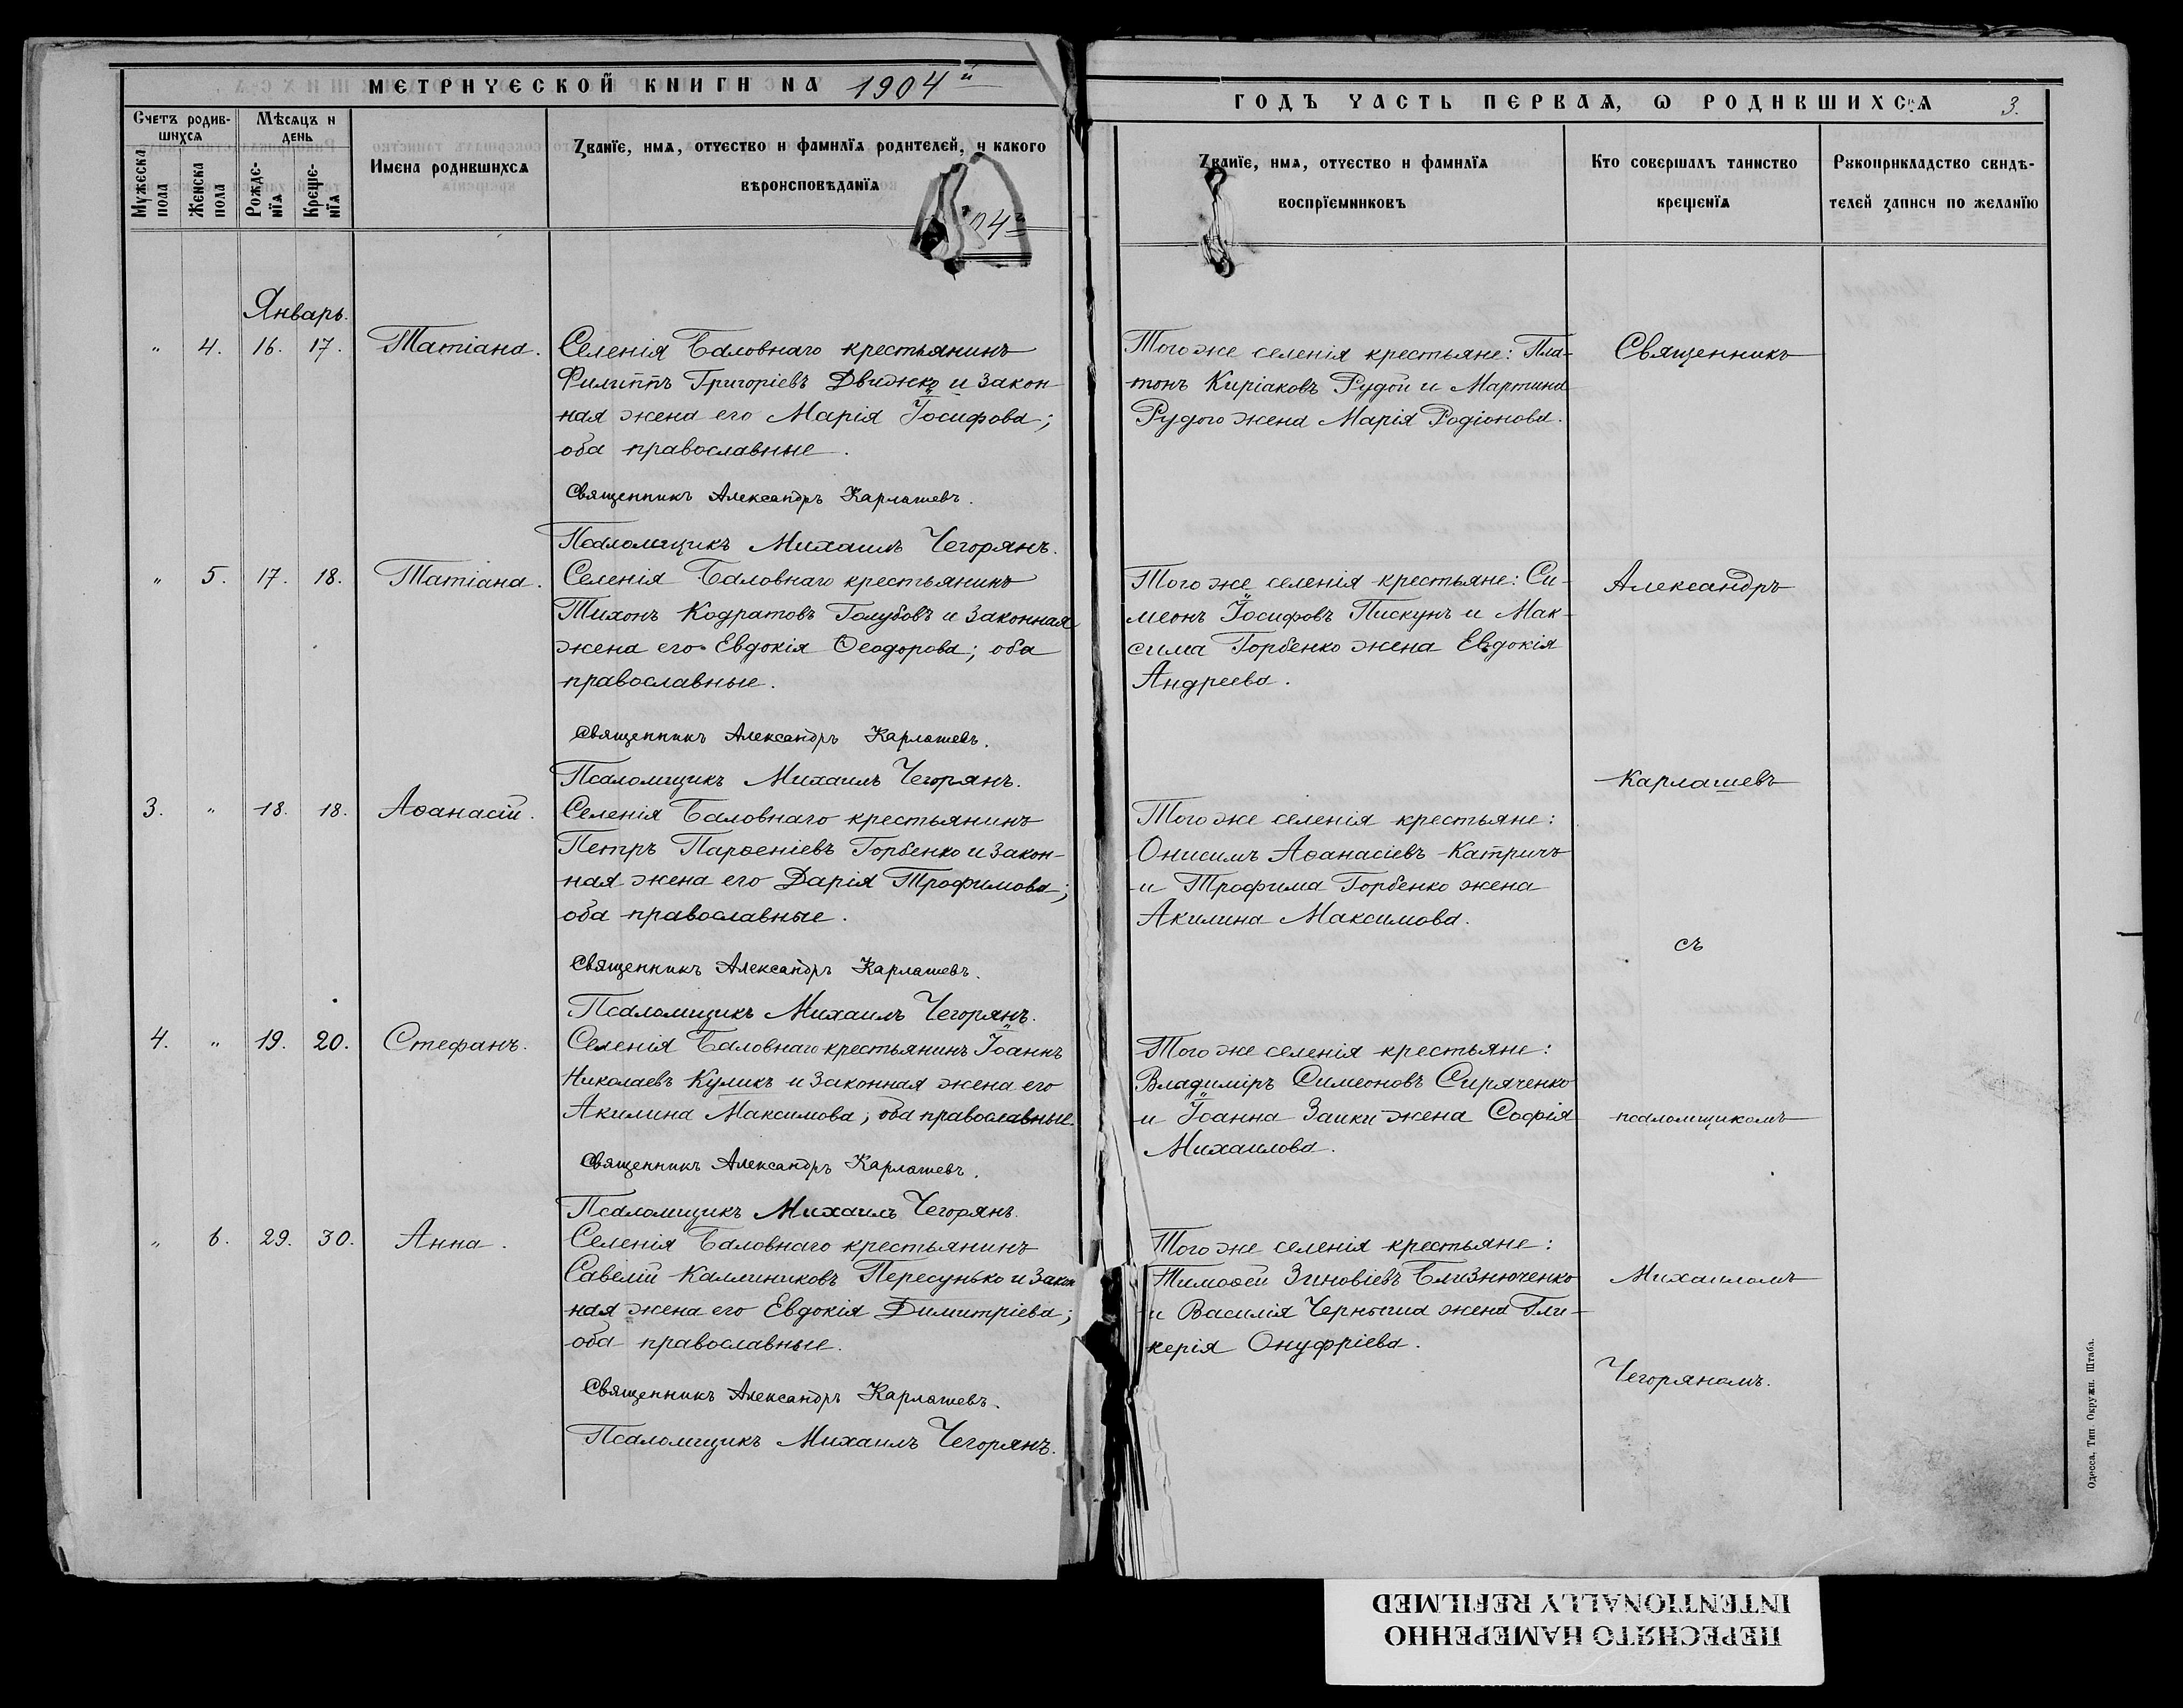 МЕТРИЧЕСКОЙ КНИГИ НА 1904й
Счетъ родив-
шихся
Мѣсяцъ и
день
Мужеска
пола
Женска
пола
Рожде-
нїя
Креще-
нїя
Имена родившихся
Званїе, имя, отчество и фамилїя родителей, и какого
вѣроисповѣданїя
Январь.
" 4. 16. 17. Татіана.
Селенія Баловнаго крестьянинъ
Филиппъ Григоріевъ Движко и закон-
ная жена его Марія Іосифова;
оба православные.
Священникъ Александръ Карлашевъ.
Псаломщикъ Михаилъ Чегорянъ.
" 5. 17. 18. Татіана.
Селенія Баловнаго крестьянинъ
Тихонъ Кодратовъ Голубовъ и законная
жена его Евдокія Ѳеодорова; оба
православные.
Священникъ Александръ Карлашевъ.
Псаломщикъ Михаилъ Чегорянъ.
3. " 18. 18. Аѳанасій.
Селенія Баловнаго крестьянинъ
Петръ Парѳеніевъ Горбенко и закон-
ная жена его Дарія Трофимова;
оба православные.
Священникъ Александръ Карлашевъ.
Псаломщикъ Михаилъ Чегорянъ.
4. " 19. 20. Стефанъ.
Селенія Баловнаго крестьянинъ Іоаннъ
Николаевъ Куликъ и законная жена его
Акилина Максимова; оба православные.
Священникъ Александръ Карлашевъ.
Псаломщикъ Михаилъ Чегорянъ.
" 6. 29. 30. Анна.
Селенія Баловнаго крестьянинъ
Савелій Каллиниковъ Пересунько и закон
ная жена его Евдокія Димитріева;
оба православные.
Священникъ Александръ Карлашевъ.
Псаломщикъ Михаилъ Чегорянъ.
ГОДЪ ЧАСТЬ ПЕРВАЯ, Ѡ РОДИВШИХСЯ 3.
Званїе, имя, отчество и фамилїя
воспрїемниковъ
Кто совершалъ таинство
крещенїя
Рукоприкладство свидѣ-
телей записи по желанїю
Того же селенія крестьяне: Пла-
тонъ Киріаковъ Рудой и Мартина
Рудого жена Марія Родіонова.
Того же селенія крестьяне: Си-
меонъ Іосифовъ Пискунъ и Мак-
сима Горбенко жена Евдокія
Андреева.
Того же селенія крестьяне:
Онисимъ Аѳанасіевъ Катричъ
и Трофима Горбенко жена
Акилина Максимова.
Того же селенія крестьяне:
Владиміръ Симеоновъ Сиряченко
и Іоанна Заики жена Софія
Михаилова.
Того же селенія крестьяне:
Тимоѳей Зиновіевъ Близнюченко
и Василія Черныша жена Гли-
керія Онуфріева.
Священникъ
Александръ
Карлашевъ
съ
псаломщикомъ
Михаиломъ
Чегоряномъ.
Одесса, Тип. Окружн. Штаба.
ПЕРЕСНЯТО НАМЕРЕННО
INTENTIONALLY REFILMED